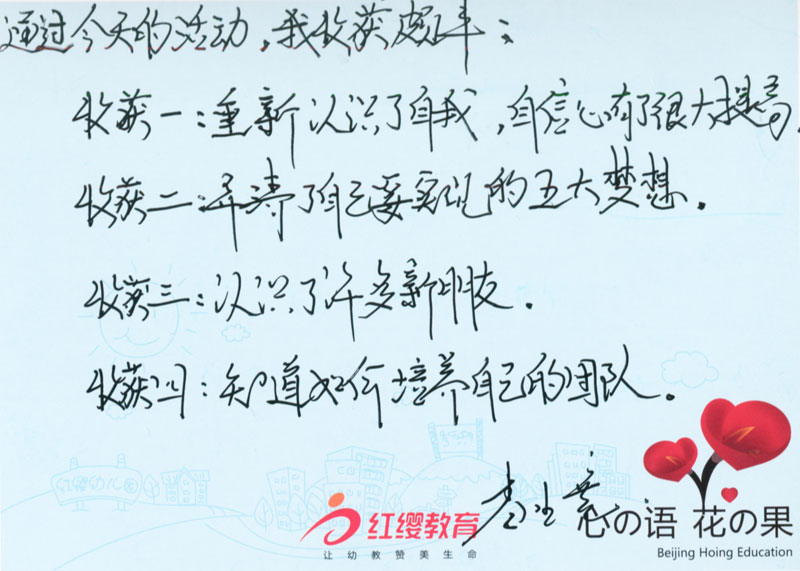 通过今天的活动,我收获颇丰:
收获一:重新认识了自我,自信心有了很大提高.
收获二:弄清了自己要实现的五大梦想.
收获三:认识了许多新朋友.
收获四:知道如何培养自己的团队.
红缨幼儿园
红缨教育
让幼教赞美生命
心の语 花の果
Beijing Hoing Education